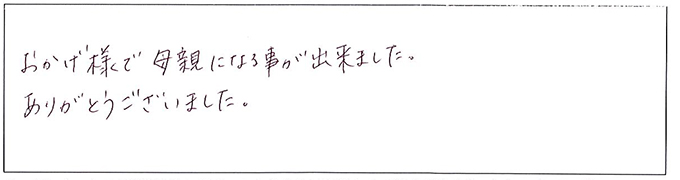 おかげ様で母親になる事が出来ました。
ありがとうございました。